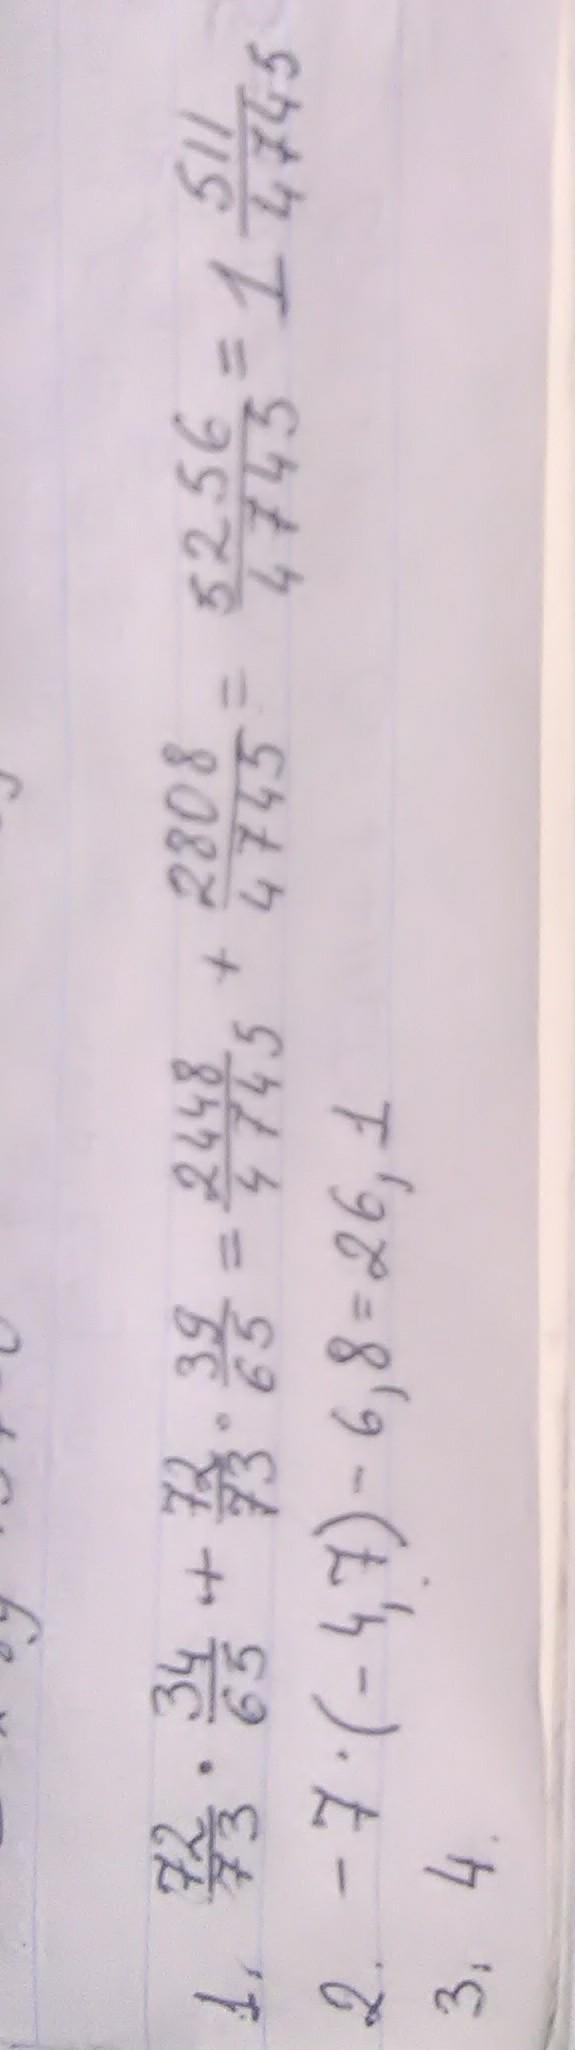 1. 72/73 · 34/65 + 72/73 · 39/65 = 2448/4745 + 2808/4745 = 5256/4745 = 1 511/4745
2. -7·(-4,7)-6,8=26,1
3. 4.